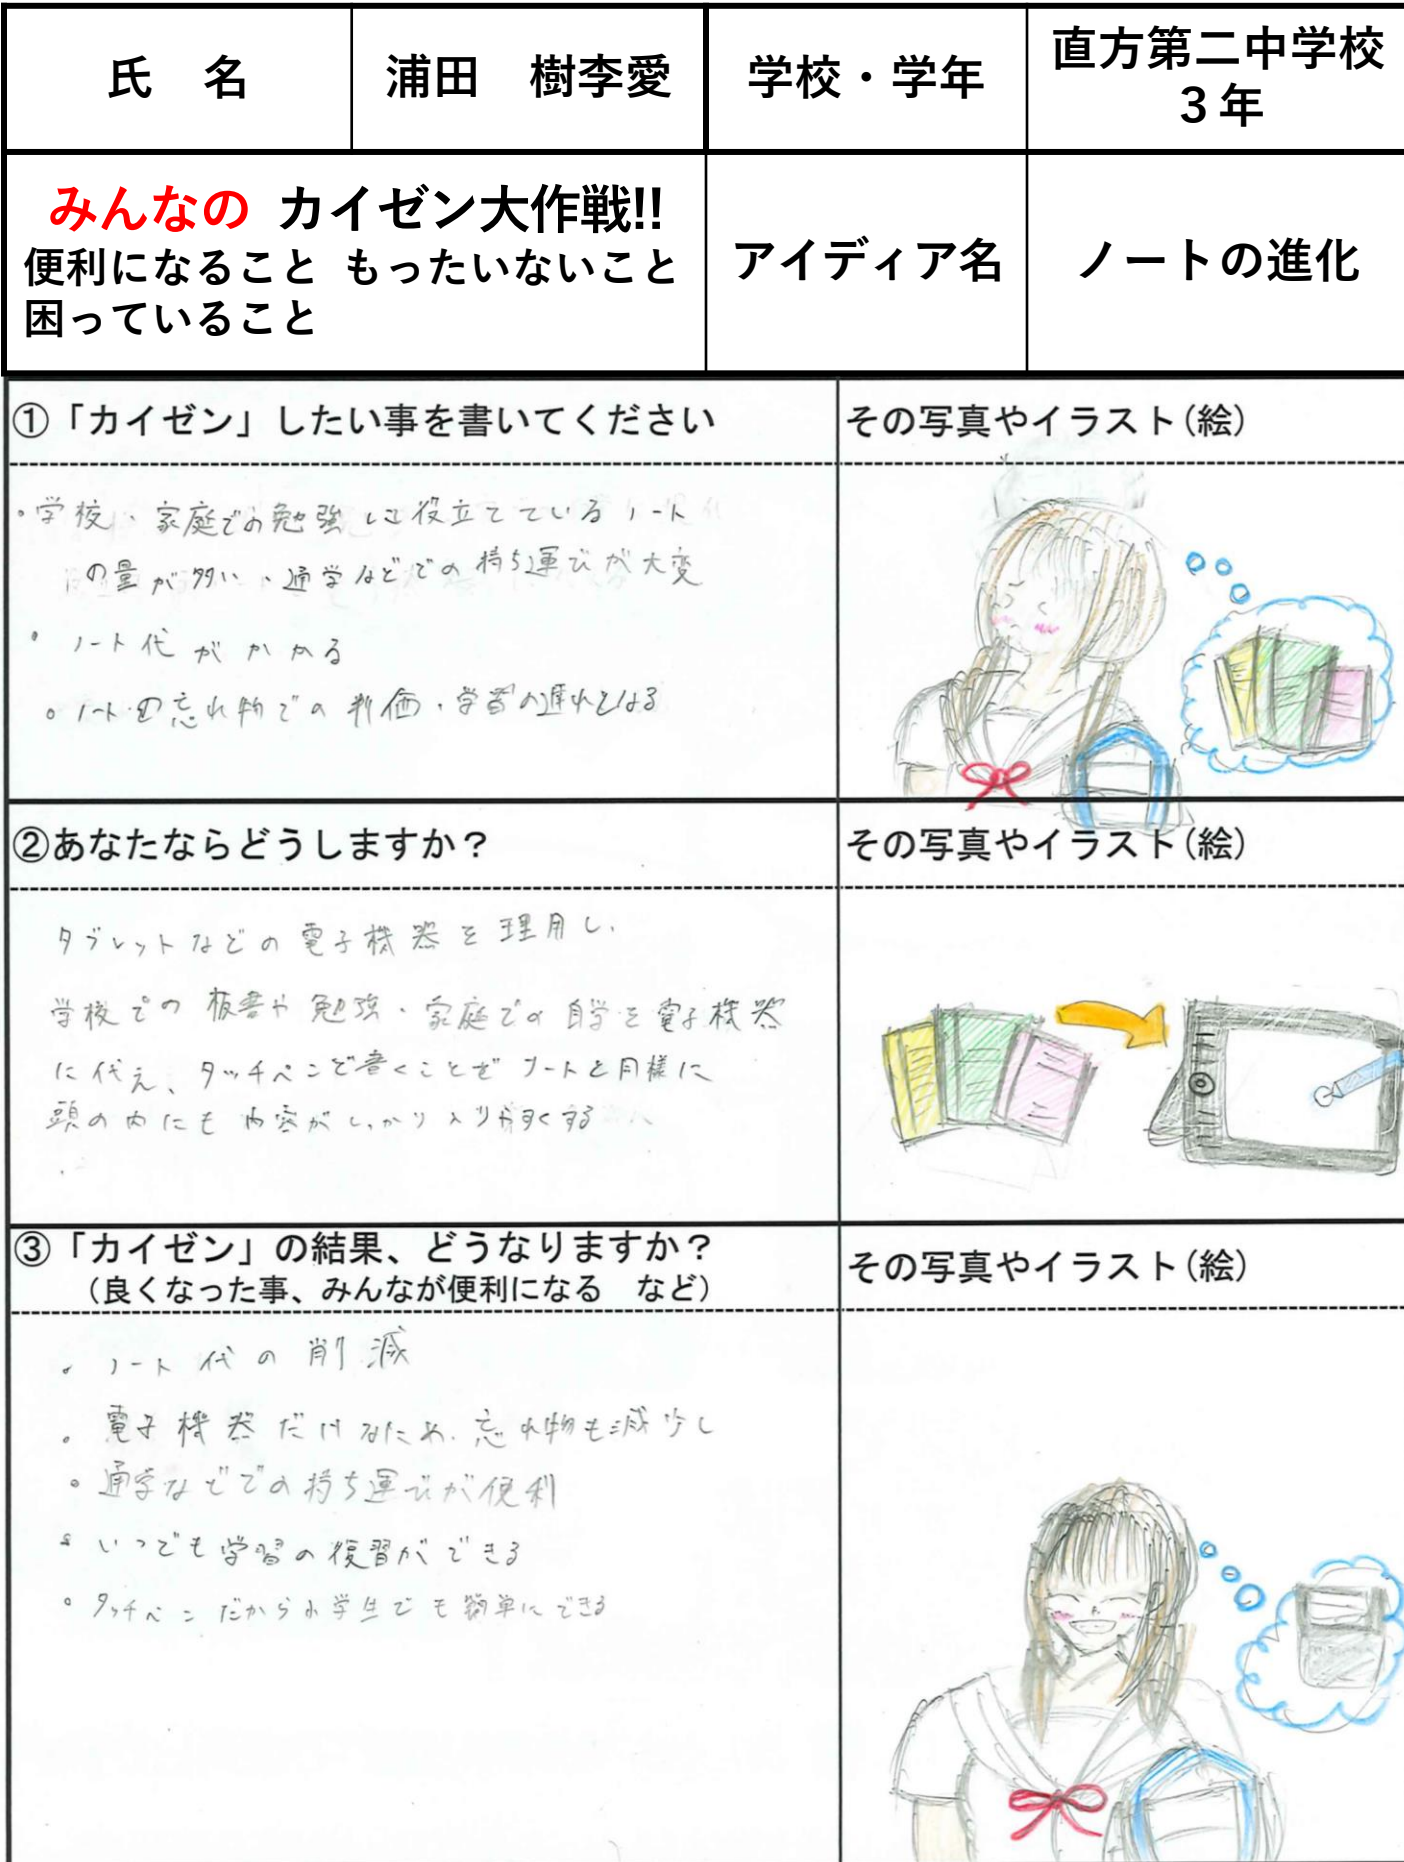 氏　名
浦田　樹李愛
学校・学年
直方第二中学校
３年
みんなの カイゼン大作戦!!
便利になること もったいないこと
困っていること
アイディア名
ノートの進化
①「カイゼン」したい事を書いてください
その写真やイラスト(絵)
・学校、家庭での勉強に役立てているノート
の量が多い、通学などでの持ち運びが大変
・ノート代がかかる
・ノートの忘れ物での評価・学習の遅れとなる
②あなたならどうしますか？
その写真やイラスト(絵)
タブレットなどの電子機器を理用し、
学校での板書や勉強・家庭での自学を電子機器
に代え、タッチペンで書くことでノートと同様に
頭の内にも内容がしっかり入りやすくする
③「カイゼン」の結果、どうなりますか？
（良くなった事、みんなが便利になる　など）
その写真やイラスト(絵)
・ノート代の削減
・電子機器だけなため、忘れ物も減少し
・通学などでの持ち運びが便利
・いつでも学習の復習ができる
・タッチペンだから小学生でも簡単にできる